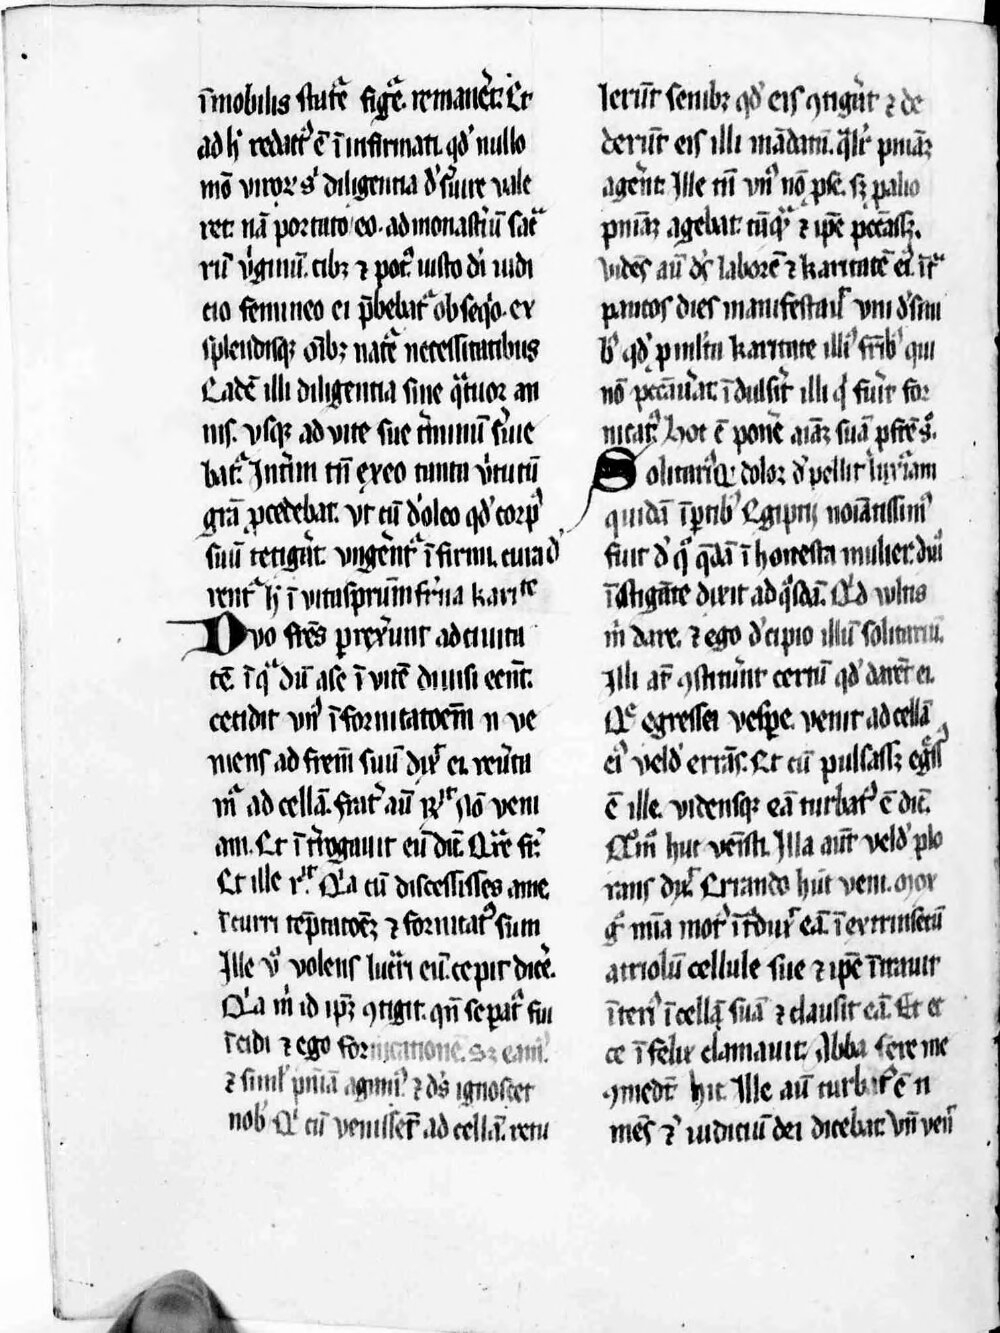 īmobilis statᵉ̄ figᵉ̄. remaneret. Et
ad h̄ redact᾿ ē ī infirmitati. qd᾿ nullo
mō viroꝝ s᾿ diligentia d᾿s᾿uire vale
ret. nā portato eo. ad monast᾿iū sac̄
rū v᾿ginū. cibꝫ ⁊ pot᾿. iusto d᾿i iudi
cio femineo ei p̄bebat᾿ obseqͥo. ex
splendisqꝫ oībꝫ nat᾿e necessitatibus
Eadē illi diligentia sine qͣtuor an
nis. vsqꝫ ad vite sue t᾿minū s᾿uie
bat᾿. Int᾿im tn̄ ex eo tanta v᾿tutū
grā ꝓcedebat. vt cū d᾿ oleo qd᾿ corp᾿
suū tetigit. vngent᾿ īfirmi. cura d᾿
rent᾿ h̄ ī vitas prum fr̄na karitᵗᵉ
Dvo fres ꝑrexerunt ad ciuita
tē. ī qͣ dū a se ī vicē diuisi eent.
cecidit vn᾿ ī fornicatoēm ⁊ ve
niens ad frem suū dix᾿ ei. reu᾿ta
m᾿ ad cellā. frat᾿ aū rx᾿. Nō veni
am. Et īt᾿rogauit eū dic̄. Qͣre fr̄.
Et ille r᾿. Qͥa cū discessisses a me.
īcurri teptatoēꝫ ⁊ fornicat᾿ sum
Ille v᾿ volens luc᾿ri eū. cepit dic᾿e.
Qͥa m᾿ id ipꝫ ꝯtigit. qn̄ sepat᾿ fui
īcidi ⁊ ego fornicationē. sꝫ eam᾿.
⁊ simł pn̄iā agam᾿ ⁊ d᾿s ignoscet
nob᾿ Qͥ cū venissēt ad cellā. retu
lerūt senibꝫ qd᾿ eis ꝯtigit ⁊ de
derūt eis illi mādatū. qͣlit᾿ pn̄iaꝫ
agerēt. Ille tn̄ vn᾿ nō p se. sꝫ p alio
pn̄iāꝫ agebat. tāqͣ ⁊ ipē peccassꝫ.
videns aū d᾿s laborē ⁊ karitatē ei᾿. ītͣ
paucos dies manifestauit vni d᾿ seni
b᾿ qd᾿ p mlta karitate illi᾿ fr̄ib᾿ qui
nō peccauat. ī dulsit illi qͥ fuit for
nicat᾿. hoc ē ponere aīaꝫ suā p fr̄e s᾿.
Solitari᾿. dolor d᾿pellit luxͥam
quidā ī ptib᾿ Egipti noīatissim᾿
fuit d᾿ qͦ qͥdā īhonesta mulier. dui᾿
īstigāte dixit ad qͥsdā. Qͥd wltis
m᾿ dare. ⁊ ego d᾿cipio illū solitariū.
Illi at᾿ ꝯstituerunt certū qd᾿ darēt ei.
Qͤ egressa vespe. venit ad cellā
ei᾿ veld᾿ errās. Et cū pulsassꝫ egss᾿
ē ille. vidensqꝫ eā turbat᾿ ē dic̄.
Qͦm᾿ huc venisti. Illa aut veld᾿ plo
rans dix᾿. Errando huc veni. Mox
g᾿ mīa mot᾿ ītᵒduxit eā. ī extrinsecū
atriolū cellule sue ⁊ ipē ītrauit
īteri᾿ ī cellā suā ⁊ clausit eā. Et ec
ce īfelix clamauit. Abba fere me
ꝯmedūt hic. Ille aū turbat᾿ ē ⁊ ti
mēs ⁊ iudiciū dei dicebat. vn̄ ven᾿